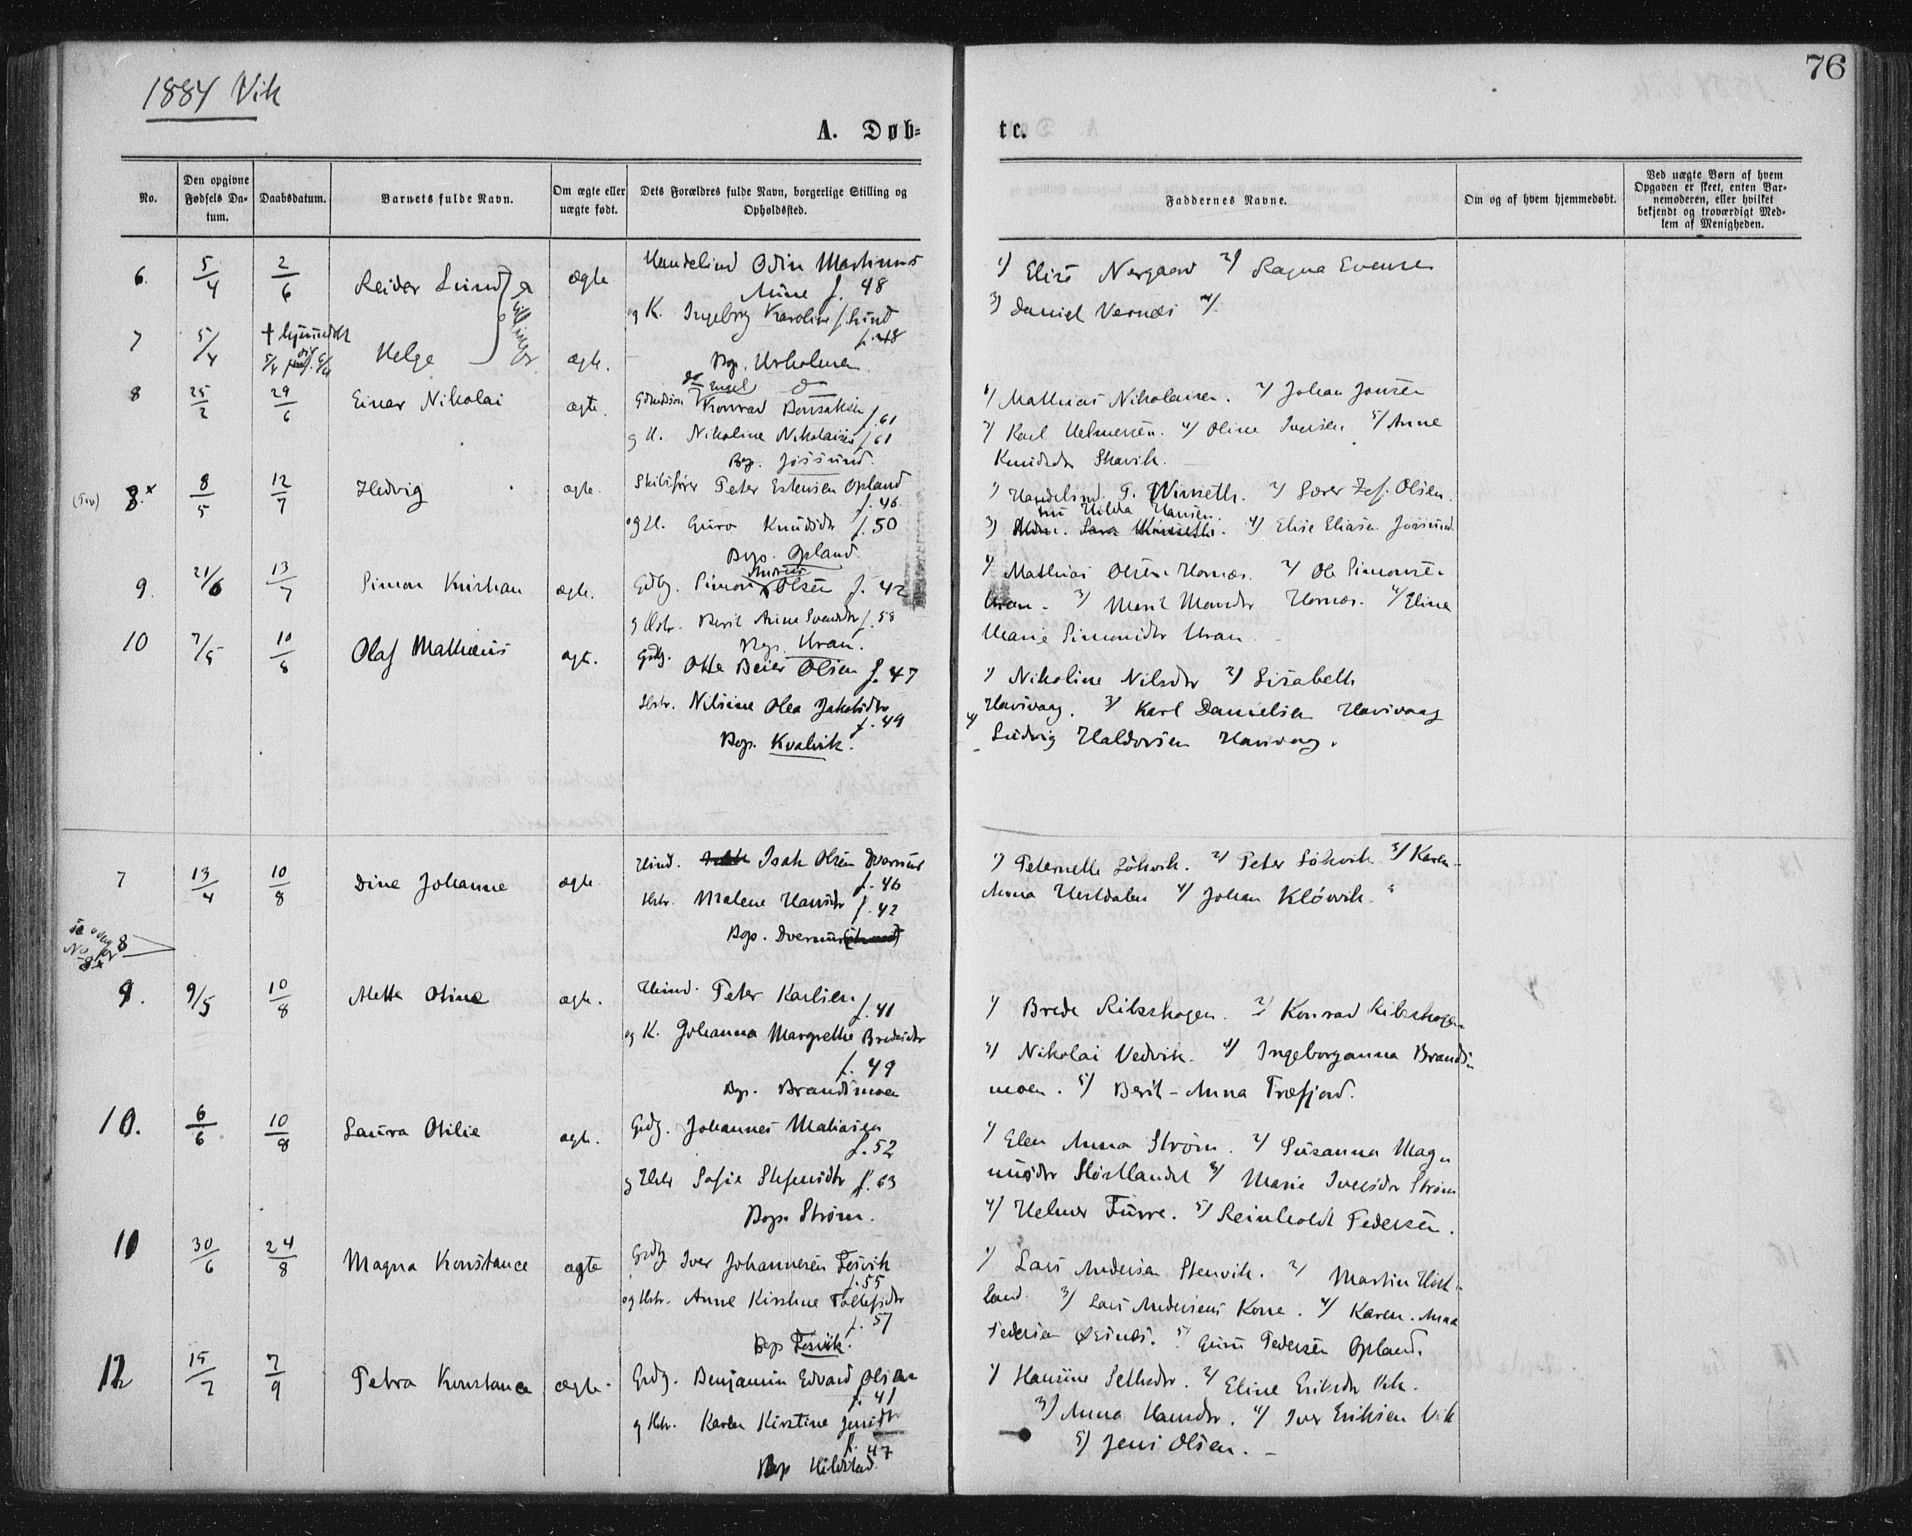 1884 Vik
76
A. Døb-
te.
No.
Den opgivne Fødsels Da-tum.
Daabsdatum.
Barnets fulde Navn.
Om ægte eller uægte født.
Dets Forældres fulde Navn, borgerlige Stilling og Opholdssted.
Faddernes Navne.
Om og af hvem hjemmedøbt.
Ved uægte Børn af hvem Opgaven er skeet, enten Bar-nemoderen, eller hvilket bekjendt og troværdigt Med-lem af Menigheden.
6. 5/4 2/6 Reidar Lund ægte Handelsmd Odin Martinus
f. 48
og K. Ingeborg Karoline f. Lund
f. 48
1) Elise Norgaard 2) Ragna Evensen
3) Daniel Vernes 4)
7 5/4 Helge ægte.
Tvillinger
8 25/2 29/6 Einar Nikolai ægte. Konrad Bensaksen f. 61
og H. Nikoline Nikolaisen f. 61
Bop. Jøssund.
1) Mathias Nikolaisen. 2) Johan Jonsen
3) Karl Helmersen. 4) Oline Iversen 5) Anne
Knudsdtr Skavik.
8.x 8/5 12/7 Hedvig ægte. Skibsfører Peter Estensen Opland
f. 46
og H. Guro Knudsdtr f. 50
Bop. Opland.
1) Handelsmd. P. Winseth. 2) Sører Zef. Olsen.
Hilda Hansen
3) 4) Elise Eliasen Jøssund
9. 21/6 13/7 Simon Kristian ægte. Gdbg. Simon Olsen f. 42
og Hstr. Berit Anne Svendsdtr f. 58
Bop. Uran.
1) Mathias Olsen Hornæs. 2) Ole Simonsen
Uran. 3) Marit Monsdtr Hornæs. 4) Eline
Marie Simonsdtr Uran
10 7/5 10/8 Olaf Mathæus ægt. Gdbg. Otto Beier Olsen f. 47
Hstr. Nilsine Olea Jakobsdtr
f. 49
Bop. Kvalvik.
1) Nikoline Nilsdtr 2) Lisabeth
Havsvaag. 3) Karl Danielsen Havsvaag
4) Ludvig Haldorsen Havsvaag.
7 13/4 10/8 Dine Johanne ægte. Hmd. Isak Olsen Dversnes
f. 40
Hstr. Malene Hansdtr f. 42
Bop. Dversnes
1) Peternelle Løkvik. 2) Peter Løkvik 3) Karen-
Anna Hestdalen 4) Johan Kløvvik.
8
9. 9/5 10/8 Mette Oline ægte. Hmd. Peter Karlsen
f. 41
og K. Johanna Margrethe Bredesdtr
f. 49
Bop. Brandsmoen
1) Brede Ribskogen. 2) Konrad Ribskogen
3) Nikolai Vedvik. 4) Ingeborganna Brands-
moen. 5) Berit-Anna Træfjord.
10. 6/6 10/8 Laura Otilie ægt. Grdbg. Johannes Mathisen
f. 52
og Hstr Sofie f. 63
Bop. Strøm.
1) Elen Anna Strøm. 2) Susanna Mag-
nusdtr 3) Marie Iversdtr Strøm
4) Helmer Furre. 5) Reinholdt Pedersen.
11 30/6 24/8 Magna Konstance ægte Grdbg Iver Johannesen Lesvik
f. 55
og Hstr. Anne Kirstine Tollefsdtr
f. 57
Bop Lesvik.
1) Lars Andersen Stenvik. 2) Martin
land. 3) Lars Andersens Kone. 4) Karen. Anna
Pedersen 5) Guru Pedersen Opland.
12 15/7 7/9 Petra Konstance ægte. Grdbg. Benjamin Edvard Olsen
f. 41
og Hstr. Karen Kirstine Jensdtr
f. 47
Bop Hildstad
1) Hansine Sethsdtr. 2) Eline Eriksdtr Vik.
3) Anna Hansdtr. 4) Iver Eriksen Vik
5) Jens Olsen.